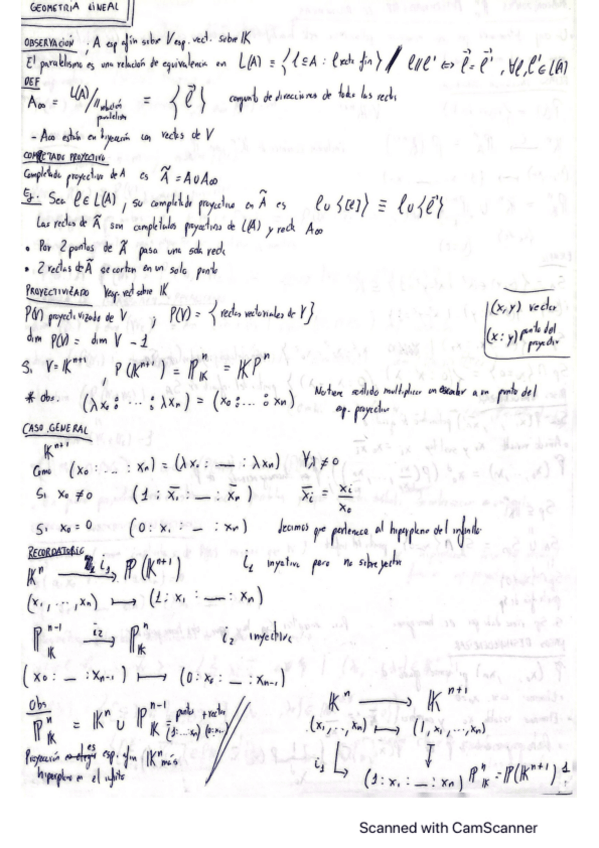 GEOMETRIA LINEAL
OBSERVACION. A esp afín sobre V esp. vect. sobre IK
El paralelismo es una relación de equivalencia en L(A) ≡ {l⊆A : l recta afín} // l//l' ⇔ l⃗ = l⃗', ∀l,l'∈L(A)
DEF
A∞ = L(A)/// relación paralelismo = {l⃗} conjunto de direcciones de todas las rectas
- A∞ están en biyección con rectas de V
COMPLETADO PROYECTIVO
Completado proyectivo de A es Ã = A∪A∞
Ej: Sea l∈L(A), su completado proyectivo en Ã es l∪{[l]} ≡ l∪{l⃗}
Las rectas de Ã son completados proyectivos de L(A) y recta A∞
• Por 2 puntos de Ã pasa una sola recta
• 2 rectas de Ã se cortan en un solo punto
PROYECTIVIZADO V esp. vect sobre IK
P(V) proyectivizado de V ; P(V) = {rectas vectoriales de V}
(x,y) vector
(x:y) punto del proyectivo
dim P(V) = dim V - 1
Si V=IKⁿ⁺¹, P(IKⁿ⁺¹) = IPⁿ_IK = IKPⁿ
* obs. (λx₀: ... : λxₙ) = (x₀: ... : xₙ) No tiene sentido multiplicar un escalar a un punto del esp. proyectivo
CASO GENERAL
IKⁿ⁺¹
Como (x₀: ... : xₙ) = (λx₁: ... : λxₙ) ∀λ≠0
Si x₀ ≠ 0 (1: x̄₁: ... : x̄ₙ) x̄ᵢ = xᵢ/x₀
Si x₀ = 0 (0: x₁: ... : xₙ) decimos que pertenece al hiperplano del infinito
RECORDATORIO
IKⁿ i₁→ IP(IKⁿ⁺¹) i₁ inyectiva pero no sobreyectiva
(x₁, ..., xₙ) ↦ (1: x₁: ... : xₙ)
IPⁿ⁻¹_IK i₂→ IPⁿ_IK i₂ inyectiva
(x₀: ... : xₙ₋₁) ↦ (0: x₀: ... : xₙ₋₁)
Obs
IPⁿ_IK = IKⁿ ∪ IPⁿ⁻¹_IK = puntos + rectas (1: ... :xₙ) (0:x₀: ...)
Proyección es esp. afín IKⁿ más
hiperplano en el infinito
IKⁿ → IKⁿ⁺¹
(x₁, ..., xₙ) ↦ (1, x₁, ..., xₙ)
i₁ ↳ (1: x₁: ... : xₙ) IPⁿ_IK = IP(IKⁿ⁺¹)
Scanned with CamScanner